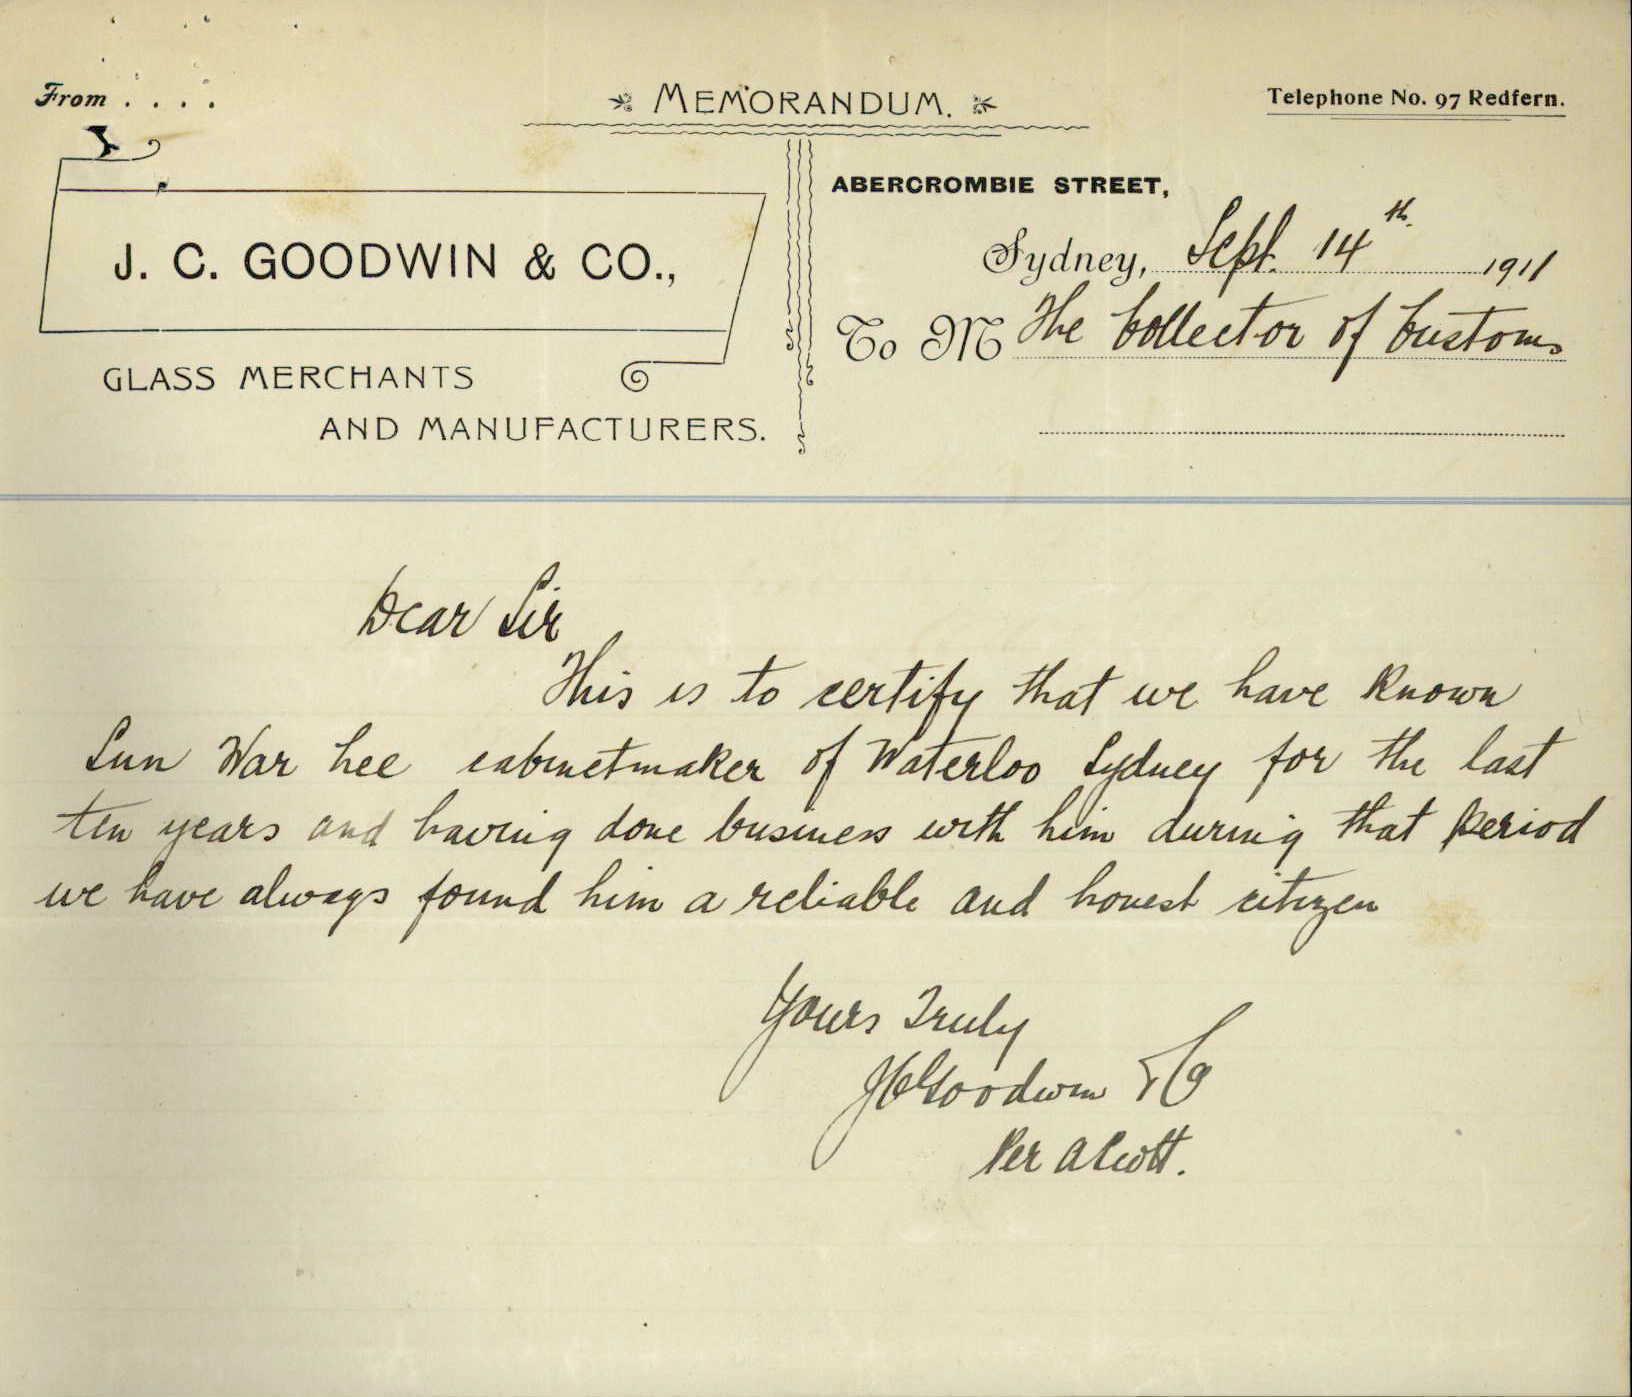 From . . . .
MEMORANDUM.
Telephone No. 97 Redfern.
J. C. GOODWIN & CO.,
GLASS MERCHANTS
AND MANUFACTURERS.
ABERCROMBIE STREET,
Sydney, Sept. 14th. 1911
To M The Collector of Customs
Dear Sir
This is to certify that we have known
Sun War Lee cabinetmaker of Waterloo Sydney for the last
ten years and having done business with him during that period
we have always found him a reliable and honest citizen
Yours Truly
J C Goodwin & Co
Per A